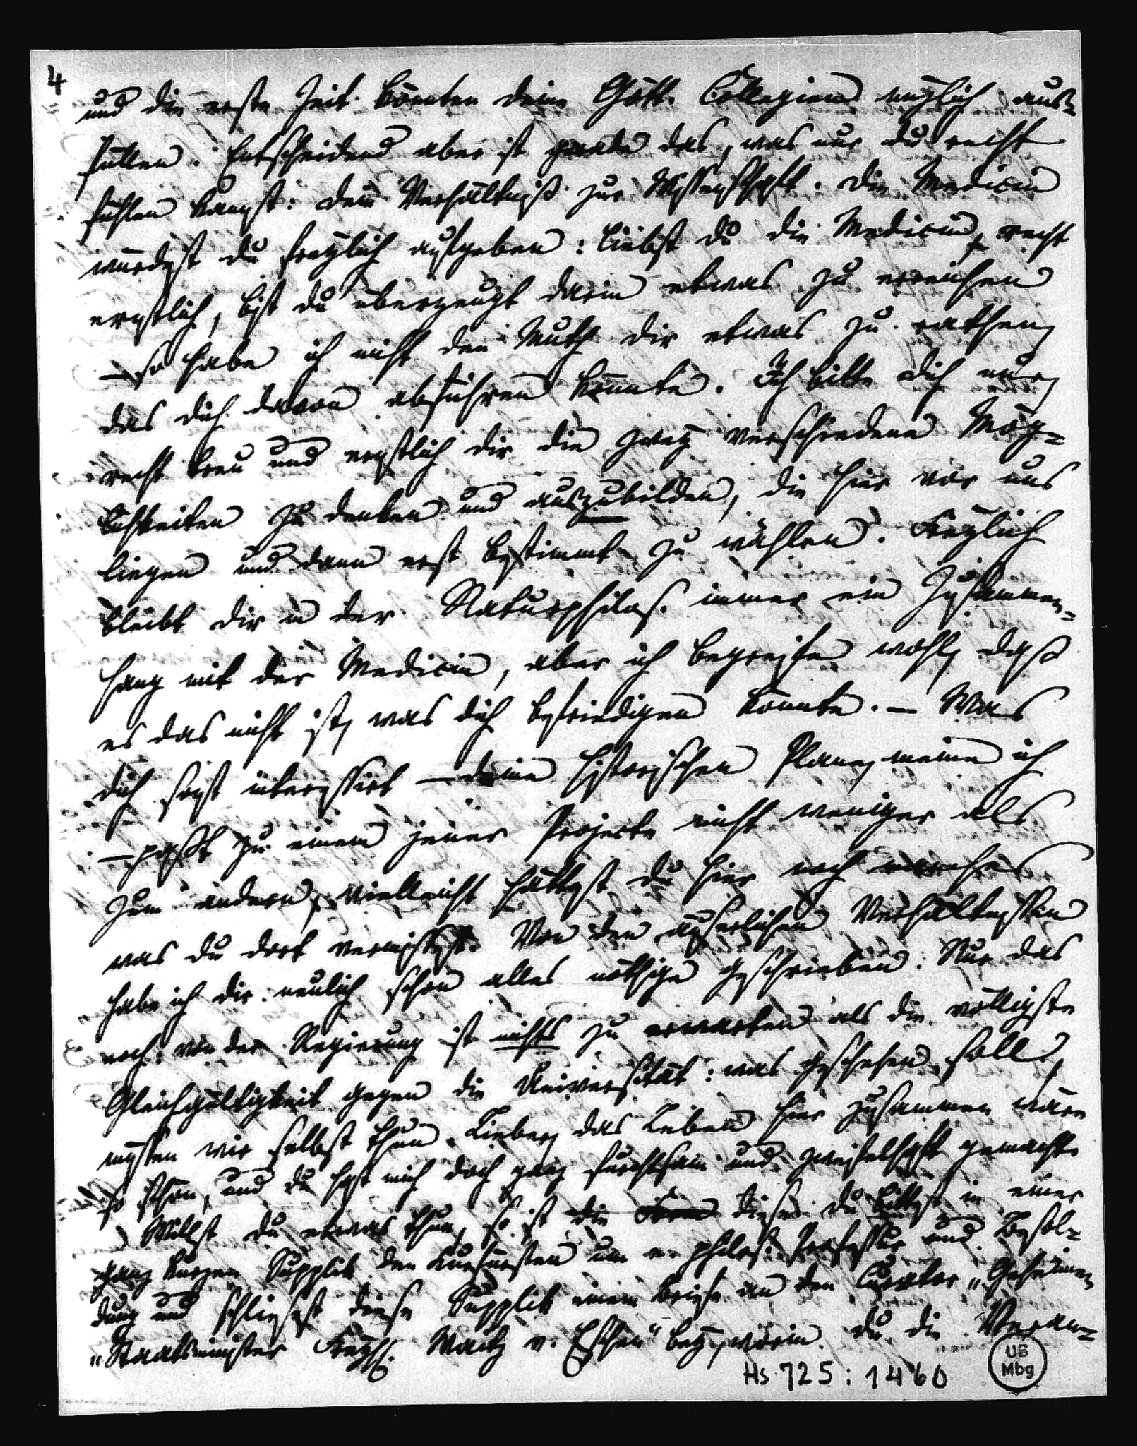 4
und die erste Zeit könnten deine Gött. Collegien ausz=
füllen. Entscheidend aber ist das, was nur du recht
fühlen kannst: dein Verhältniß zur Wissenschaft. Die Medicin
würdest du freylich aufgeben: liebst du die Medicin recht
ernstlich, bist du überzeugt darin etwas zu erreichen
– so habe ich nicht den Muth dir etwas zu rathen,
das dich davon abführen könnte. Ich bitte dich nur,
recht treu und ernstlich dir die zwey verschiedene Mög=
lichkeiten zu denken und auszubilden, die hier vor uns
liegen und dann erst bestimmt zu wählen. Freylich
bleibt dir in der Naturphilos. immer ein Zusammen=
hang mit der Medicin, aber ich begreife wohl, daß
es das nicht ist, was dich befriedigen könnte. – Was
dich sonst interessirt – deine historischen Plane, meine ich
– paßt zu einem jener Projecte nicht weniger als
zum andern, vielleicht hättest du hier noch manches
was du dort vermissest. Von den äußerlichen Verhältnissen
habe ich dir neulich schon alles nöthige geschrieben. Nur das
noch: von der Regierung ist nichts zu erwarten als die völligste
Gleichgültigkeit gegen die Universität: was geschehen soll,
müssen wir selbst thun. Lieber, das Leben hier zusammen wäre
so schön, und du hast mich doch ganz furchtsam und zweifelhaft gemacht.
Willst du etwas thun, so ist die Form diese: du bittest in einer
ganz kurzen Supplik den Kurfürsten um e. philos. Professur und Besol=
dung und schließest diese Supplik einem Briefe an den Curator „Geheimen
„Staatsminister Freyh. Waitz v. Eschen" bey, worin du die Veran=
Hs 725 : 1460
UB
Mbg